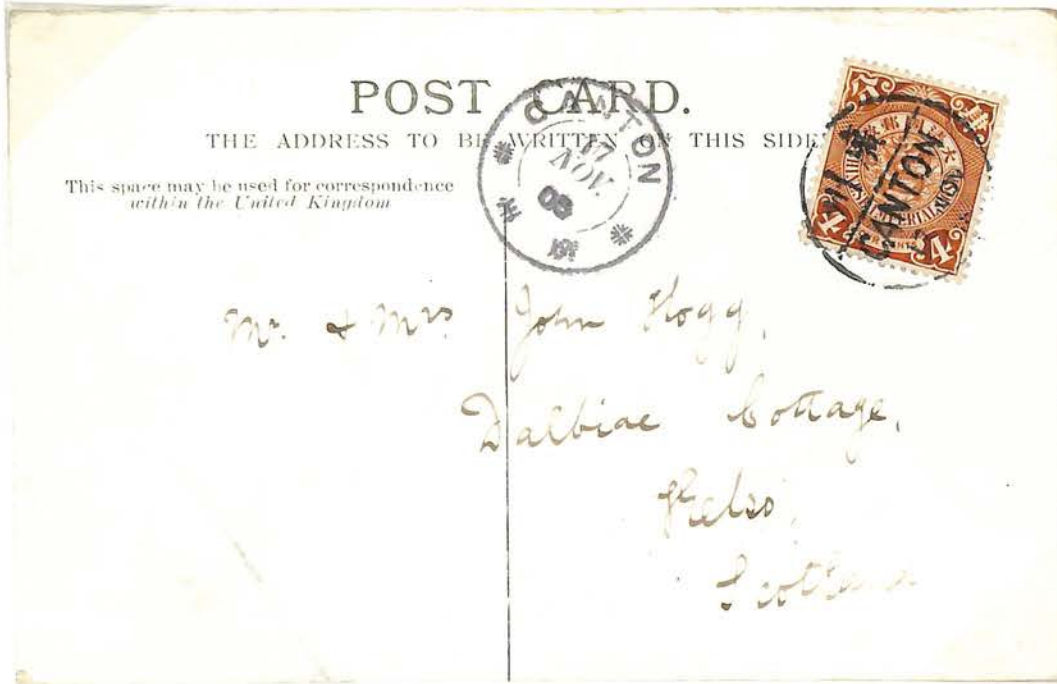 POST CARD.
THE ADDRESS TO BE WRITTEN ON THIS SIDE
This space may be used for correspondence
within the United Kingdom
CANTON
17
NOV.
CANTON
4 4
Mr. & Mrs. John Hogg,
Dalbiac Cottage,
Kelso,
Scotland